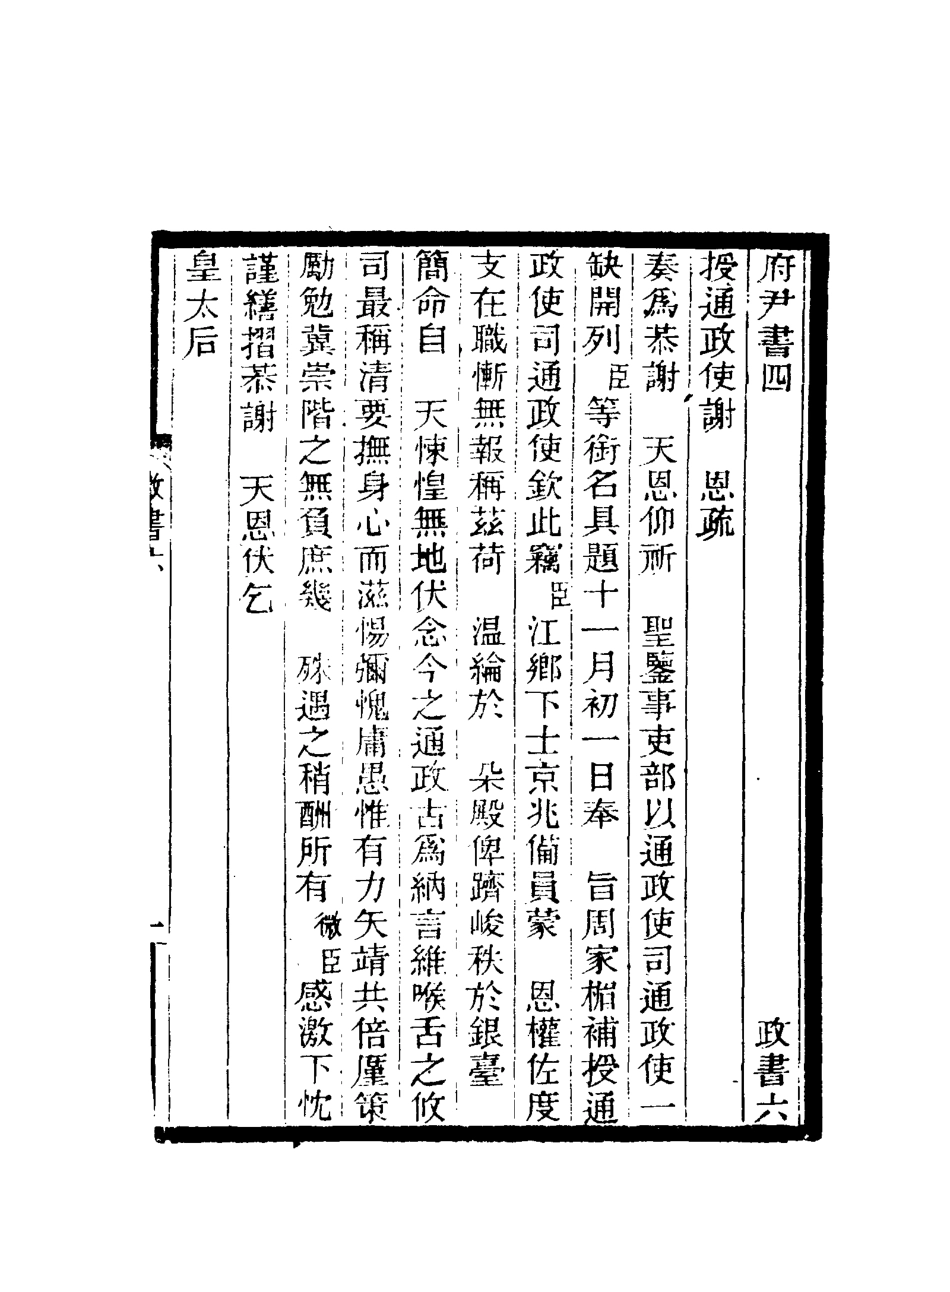 府尹書四　政書六
授通政使謝　恩疏
奏爲恭謝　天恩仰祈　聖鑒事吏部以通政使司通政使一
缺開列臣等銜名具題十一月初一日奉　旨周家楣補授通
政使司通政使欽此竊臣江鄉下士京兆備員蒙　恩權佐度
支在職慚無報稱茲荷　溫綸於　朵殿俾躋峻秩於銀臺
簡命自　天悚惶無地伏念今之通政古爲納言維喉舌之攸
司最稱清要撫身心而滋惕彌愧庸愚惟有力矢靖共倍厪策
勵勉冀崇階之無負庶幾　殊遇之稍酬所有微臣感激下忱
謹繕摺恭謝　天恩伏乞
皇太后
政書六